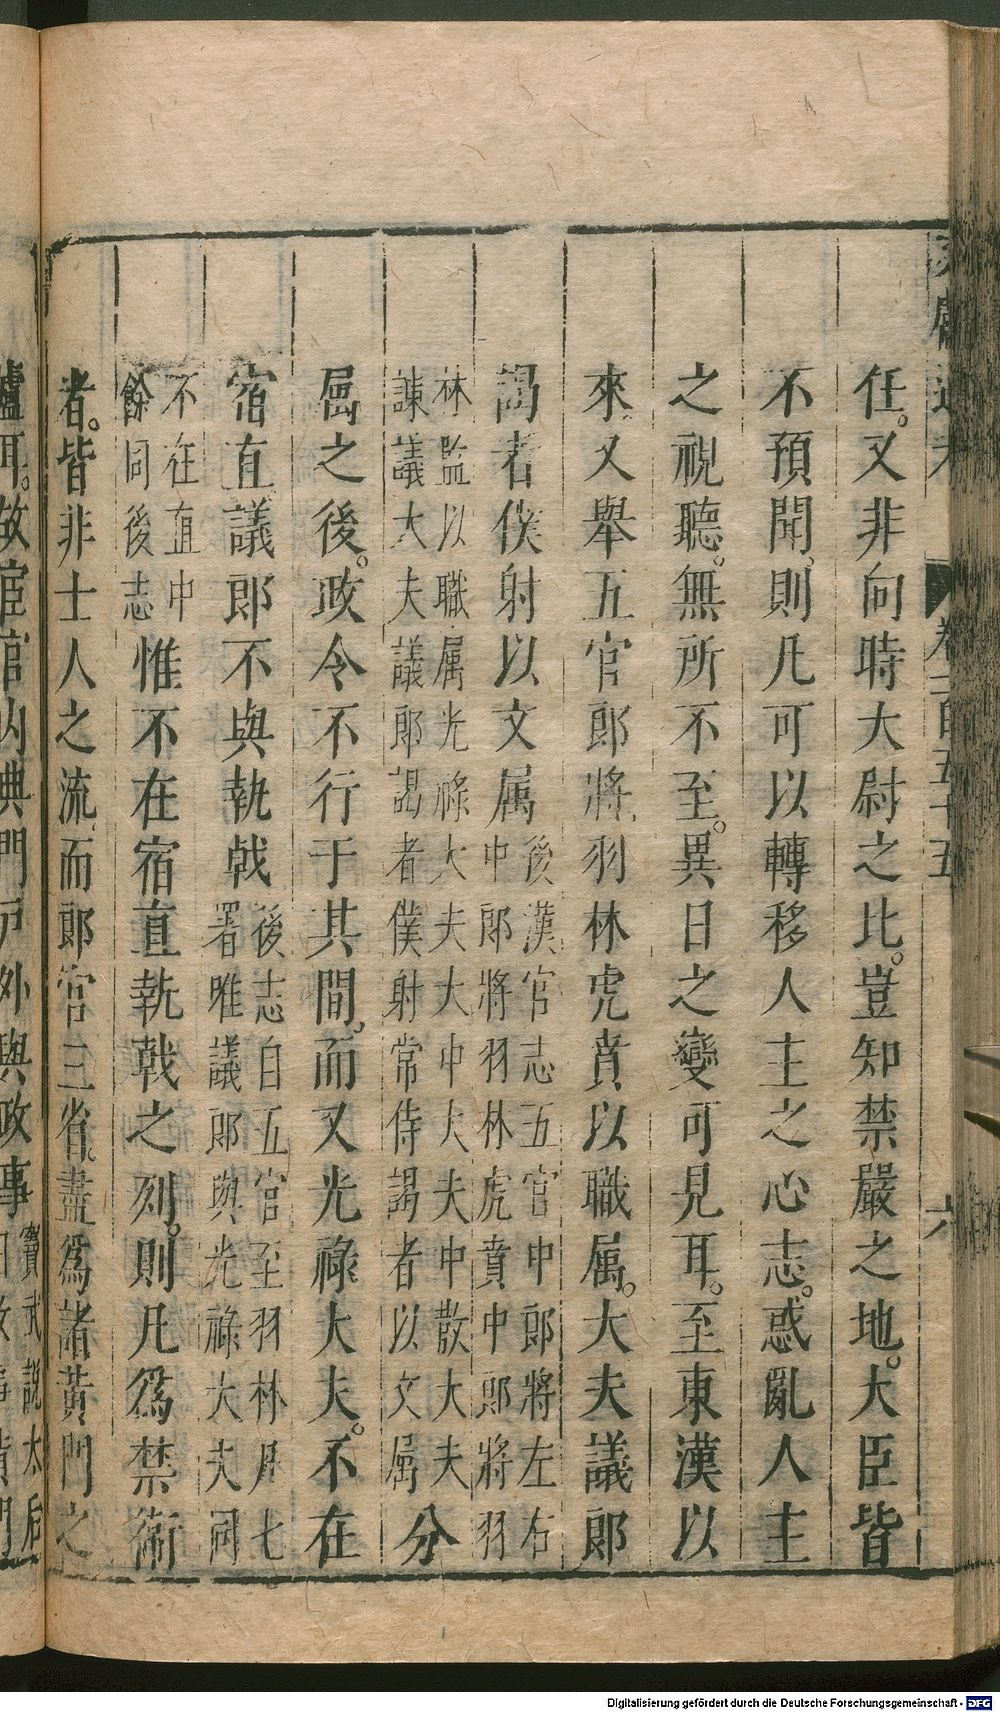 卷二百五十五
六
任。又非向時大尉之比。豈知禁嚴之地。大臣皆
不預聞。則凡可以轉移人主之心志。惑亂人主
之視聽。無所不至。異日之變可見耳。至東漢以
來、又舉五官郎將、羽林虎賁以職属。大夫議郎
謁者僕射以文属後漢官志五官中郎將左右
中郎將羽林虎賁中郎將羽
林監以職属光祿大夫大中大夫中散大夫
諫議大夫議郎謁者僕射常侍謁者以文属分
属之後。政令不行于其間、而又光祿大夫。不在
宿直議郎不與執戟後志自五官至羽林凡七
署唯議郎與光祿大夫同
不在直中
餘同後志惟不在宿直執戟之列。則凡爲禁衛
者。皆非士人之流、而郎官三省。盡爲諸黃門之
耳。故宦官内典門戸外與政事竇武說太后
Digitalisierung gefördert durch die Deutsche Forschungsgemeinschaft - DFG